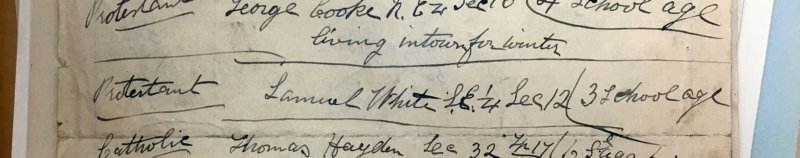 Protestant George Cooke N.E 4 Sec 10 (4 School age
living in town for winter
Protestant Samuel White S.E. 1/4 Sec 12 (3 School age
Catholic Thomas Hayden Sec 32